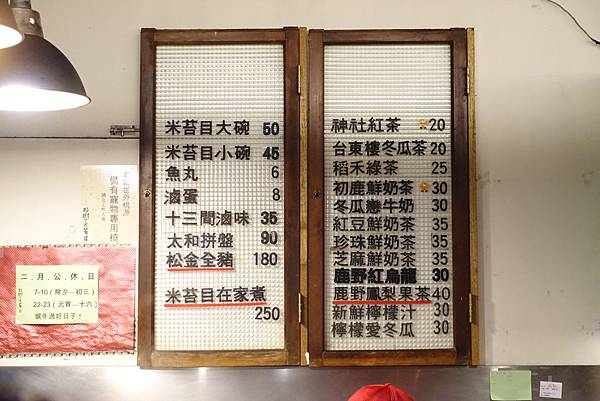 米苔目大碗 50
米苔目小碗 45
魚丸 6
滷蛋 8
十三間滷味 35
太和拼盤 90
松金全豬 180
米苔目在家煮
250
神社紅茶 20
台東樓冬瓜茶 20
稻禾綠茶 25
初鹿鮮奶茶 30
冬瓜戀牛奶 30
紅豆鮮奶茶 35
珍珠鮮奶茶 35
芝麻鮮奶茶 35
鹿野紅烏龍 30
鹿野鳳梨果茶 40
新鮮檸檬汁 30
檸檬愛冬瓜 30
備有寵物專用椅
二.月.公.休.日
7-10 (除夕—初三)
22-23 (元宵—十六)
猴年過好日子!